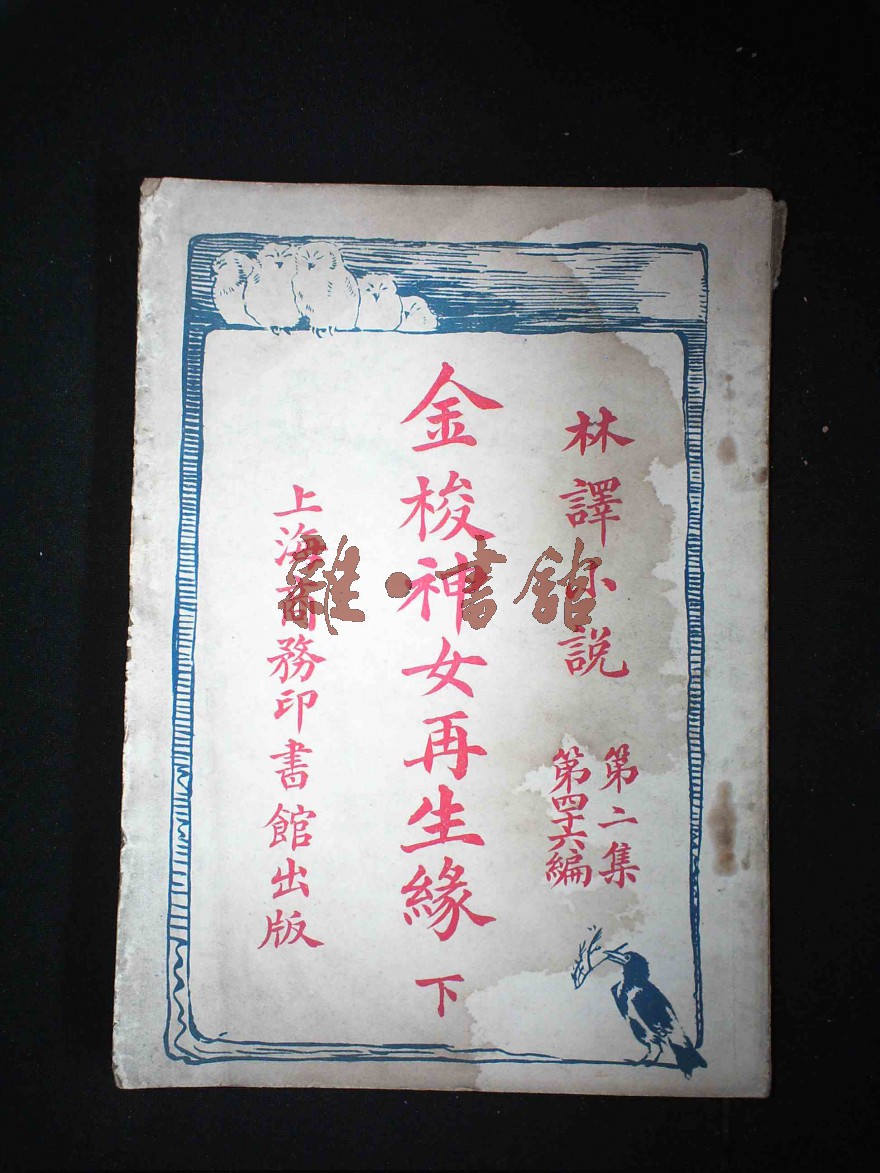 林譯小説
第二集
第四十六編
金梭神女再生緣 下
上海商務印書館出版
雜·書館